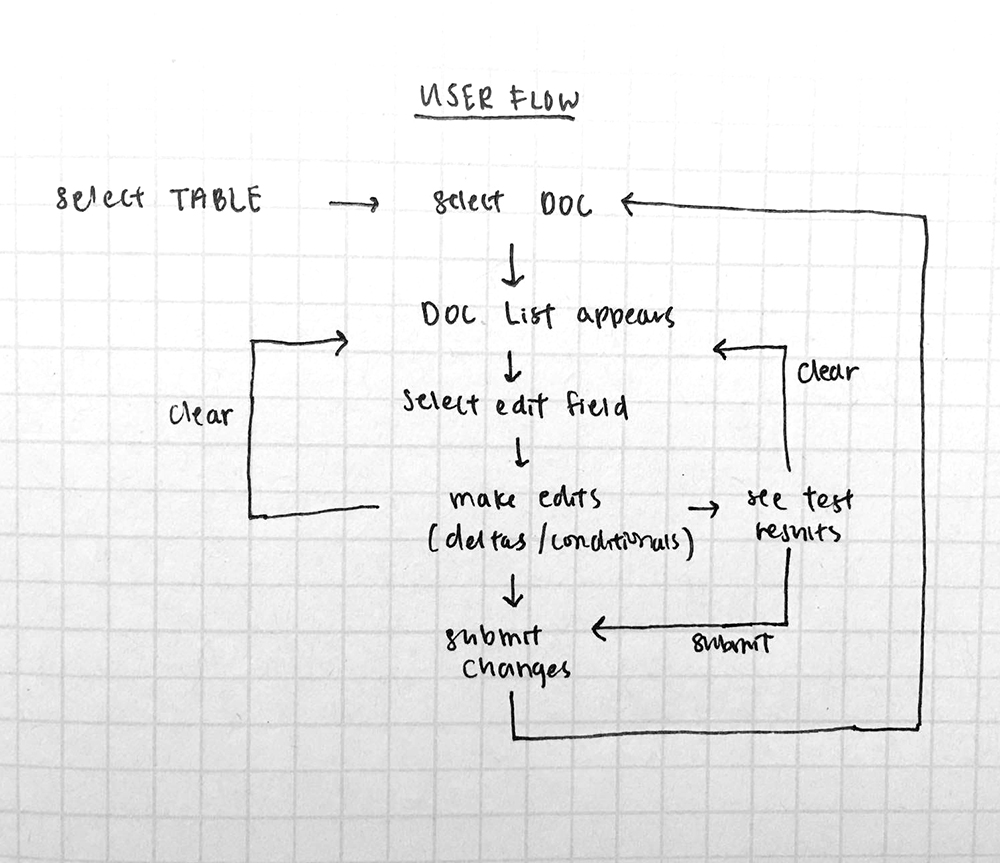 USER FLOW
select TABLE → select DOC
DOC List appears
clear
select edit field
clear
make edits
(deltas/conditionals)
→ see test
results
submit
changes
submit